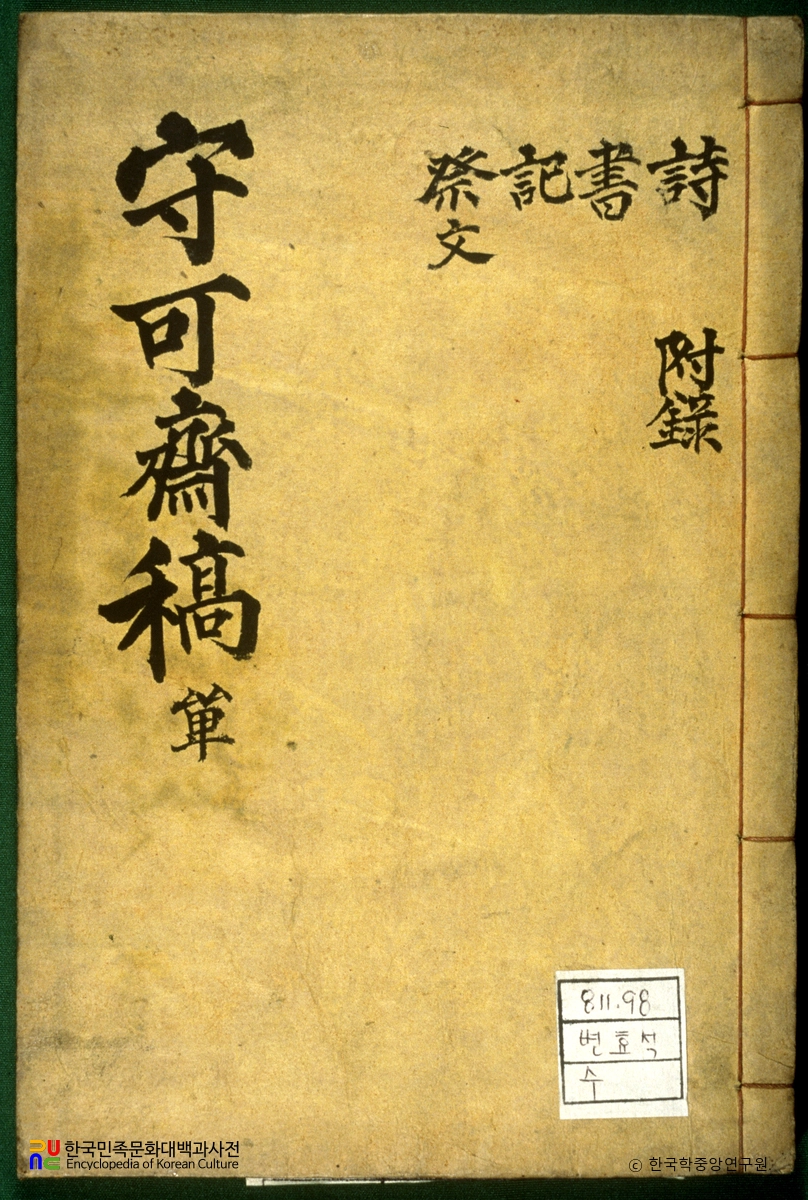 詩
書
記
祭文
附錄
守可齋稿 單
8.11.98
변효석
수
한국민족문화대백과사전
Encyclopedia of Korean Culture
ⓒ 한국학중앙연구원